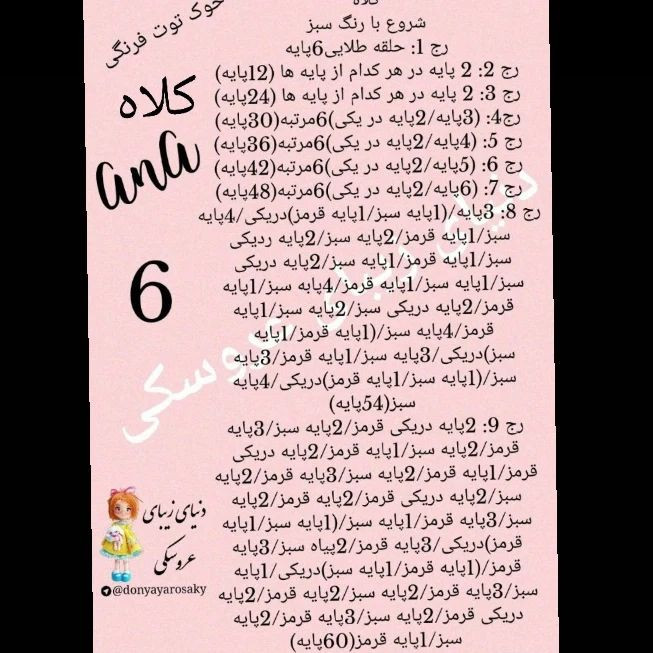 خوک توت فرنگی
کلاه
ana
6
کلاه
شروع با رنگ سبز
رج 1: حلقه طلایی6پایه
رج 2: 2 پایه در هر کدام از پایه ها (12پایه)
رج 3: 2 پایه در هر کدام از پایه ها (24پایه)
رج4: (3پایه/2پایه در یکی)6مرتبه(30پایه)
رج 5: (4پایه/2پایه در یکی)6مرتبه(36پایه)
رج 6: (5پایه/2پایه در یکی)6مرتبه(42پایه)
رج 7: (6پایه/2پایه در یکی)6مرتبه(48پایه)
رج 8: 3پایه/(1پایه سبز/1پایه قرمز)دریکی/4پایه
سبز/1پایه قرمز/2پایه سبز/2پایه ردیکی
سبز/1پایه قرمز/1پایه سبز/2پایه دریکی
سبز/1پایه سبز/1پایه قرمز/4پابه سبز/1پایه
قرمز/2پایه دریکی سبز/2پایه سبز/1پایه
قرمز/4پایه سبز/(1پایه قرمز/1پایه
سبز)دریکی/3پایه سبز/1پایه قرمز/3پایه
سبز/(1پایه سبز/1پایه قرمز)دریکی/4پایه
سبز(54پایه)
رج 9: 2پایه دریکی قرمز/2پایه سبز/3پایه
قرمز/2پایه سبز/1پایه قرمز/2پایه دریکی
قرمز/1پایه قرمز/2پایه سبز/3پایه قرمز/2پایه
سبز/2پایه دریکی قرمز/2پایه قرمز/2پایه
سبز/3پایه قرمز/1پایه سبز/(1پایه سبز/1پایه
قرمز)دریکی/3پایه قرمز/2پیاه سبز/3پایه
قرمز/(1پایه قرمز/1پایه سبز)دریکی/1پایه
سبز/3پایه قرمز/2پایه سبز/2پایه قرمز/2پایه
دریکی قرمز/2پایه سبز/3پایه قرمز/2پایه
سبز/1پایه قرمز(60پایه)
دنیای زیبای عروسکی
دنیای زیبای
عروسکی
@donyayarosaky